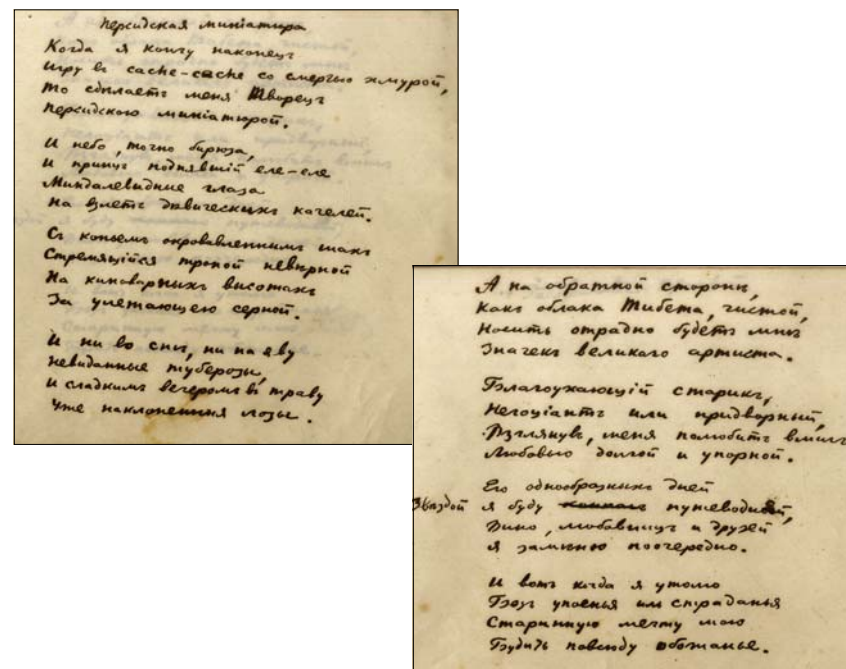 Персидская миніатюра
Когда я кончу наконецъ
Игру въ cache-cache со смертью хмурой,
То сдѣлаетъ меня Творецъ
Персидскою миніатюрой.
И небо, точно бирюза,
И принцъ поднявшій еле-еле
Миндалевидные глаза
На взлетъ дѣвическихъ качелей.
Съ копьемъ окровавленнымъ шахъ
Стремящійся тропой невѣрной
На киноварныхъ высотахъ
За улетающею серной.
И ни во снѣ, ни на яву
Невиданные туберозы,
И сладкимъ вечеромъ въ траву
Уже наклоненныя лозы.
А на обратной сторонѣ,
Какъ облака Тибета, чистой,
Носить отрадно будетъ мнѣ
Значекъ великаго артиста.
Благоухающій старикъ,
Негоціантъ или придворный,
Взглянувъ, меня полюбитъ вмигъ
Любовью долгой и упорной.
Его однообразныхъ дней
Звѣздой я буду путеводной,
Вино, любовницъ и друзей
Я замѣню поочередно.
И вотъ когда я утолю
Безъ упоенья иль страданья
Старинную мечту мою
Будить повсюду обожанье.